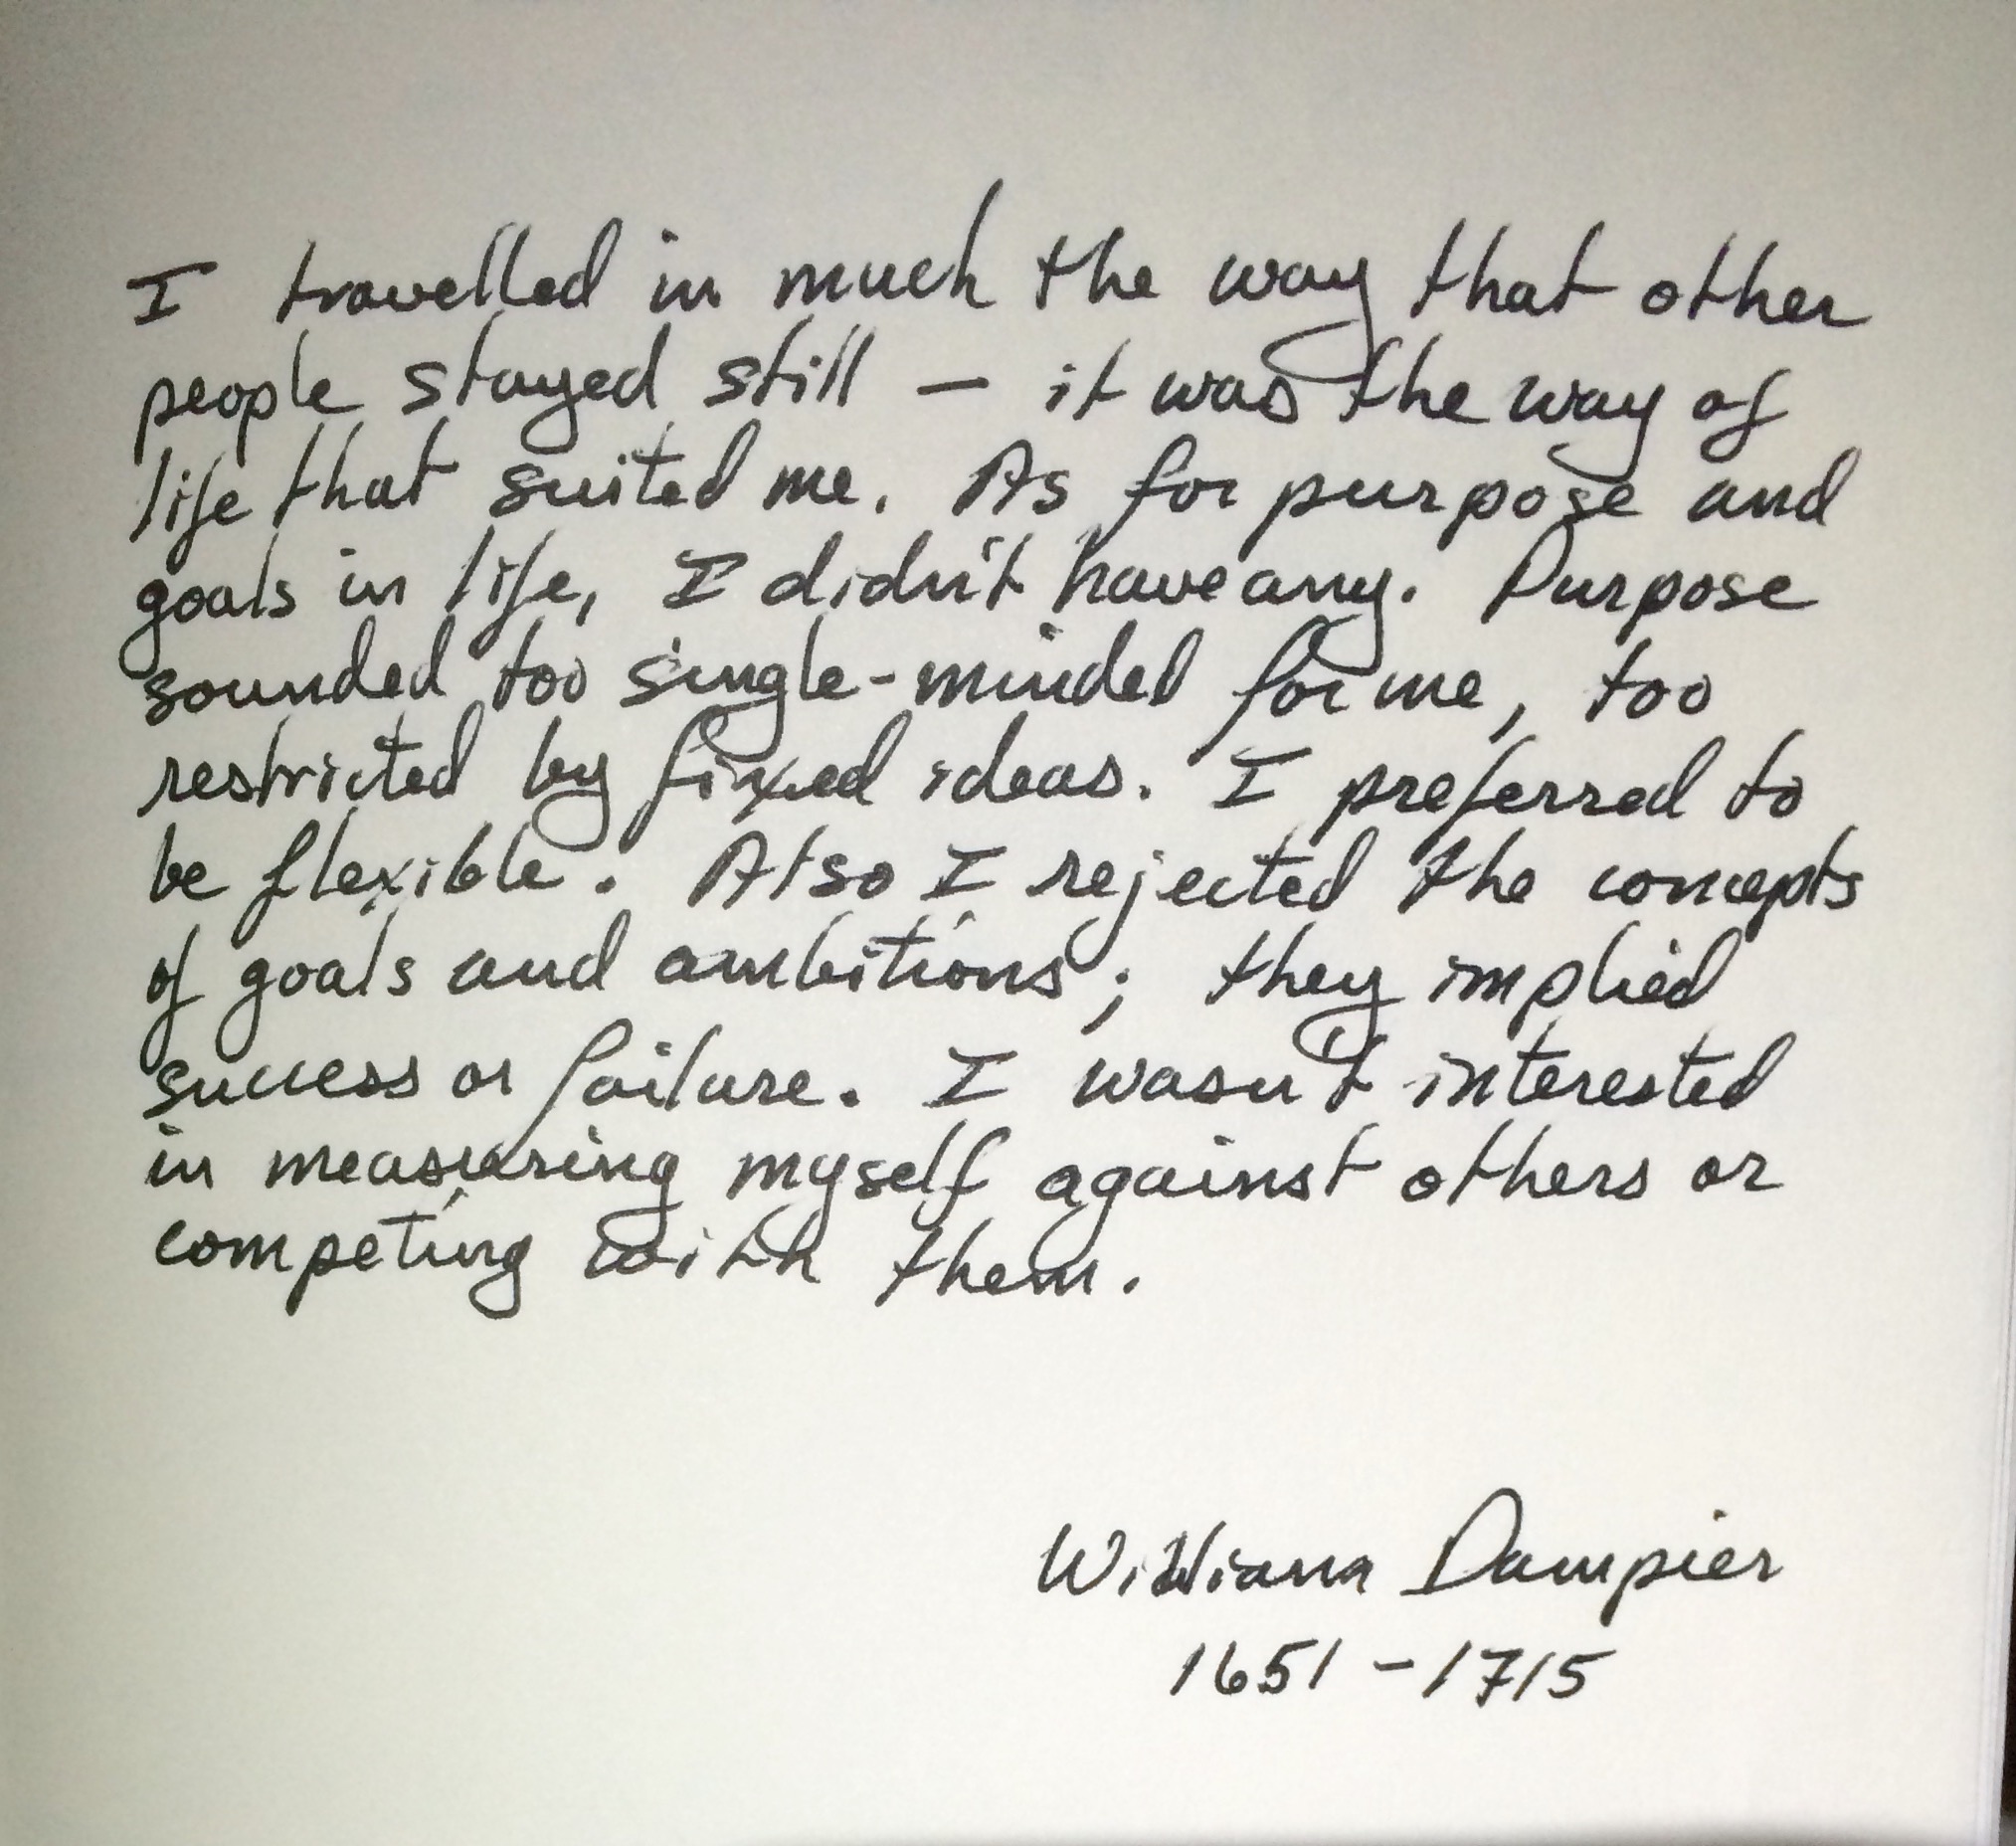 I travelled in much the way that other
people stayed still – it was the way of
life that suited me. As for purpose and
goals in life, I didn't have any. Purpose
sounded too single-minded for me, too
restricted by fixed ideas. I preferred to
be flexible. Also I rejected the concepts
of goals and ambitions; they implied
success or failure. I wasn't interested
in measuring myself against others or
competing with them.
William Dampier
1651 – 1715